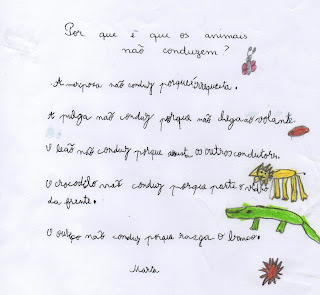 Por que é que os animais
não conduzem?
A mariposa não conduz porque é irrequieta.
A pulga não conduz porque não chega ao volante.
O leão não conduz porque assusta os outros condutores.
O crocodilo não conduz porque parte o vidro
da frente.
O ouriço não conduz porque rasga o banco.
Marta